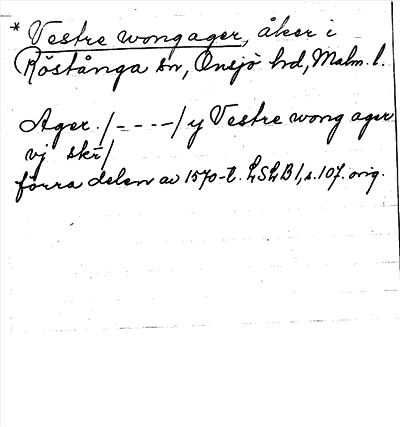 * Vestre wong ager, åker i
Röstånga sn, Onsjö hd, Malm. l.
Ager /- - - -/ y Vestre wong ager
vj skr̄/
förra delen av 1570-t. LSLB 1, s. 107. orig.